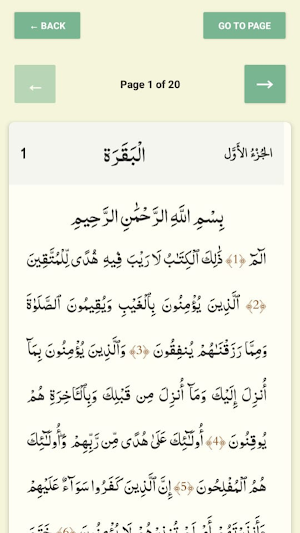 ← BACK
GO TO PAGE
←
Page 1 of 20
→
الجُزْءُ الأَوَّل
الْبَقَرَة
1
بِسْمِ اللَّهِ الرَّحْمَٰنِ الرَّحِيمِ
الٓمٓ ﴿1﴾ ذَٰلِكَ ٱلْكِتَٰبُ لَا رَيْبَ فِيهِ هُدًى لِّلْمُتَّقِينَ
﴿2﴾ ٱلَّذِينَ يُؤْمِنُونَ بِٱلْغَيْبِ وَيُقِيمُونَ ٱلصَّلَوٰةَ
وَمِمَّا رَزَقْنَٰهُمْ يُنفِقُونَ ﴿3﴾ وَٱلَّذِينَ يُؤْمِنُونَ بِمَآ
أُنزِلَ إِلَيْكَ وَمَآ أُنزِلَ مِن قَبْلِكَ وَبِٱلْـَٔاخِرَةِ هُمْ
يُوقِنُونَ ﴿4﴾ أُو۟لَٰٓئِكَ عَلَىٰ هُدًى مِّن رَّبِّهِمْ وَأُو۟لَٰٓئِكَ
هُمُ ٱلْمُفْلِحُونَ ﴿5﴾ إِنَّ ٱلَّذِينَ كَفَرُوا۟ سَوَآءٌ عَلَيْهِمْ
ءَأَنذَرْتَهُمْ أَمْ لَمْ تُنذِرْهُمْ لَا يُؤْمِنُونَ ﴿6﴾ خَتَمَ